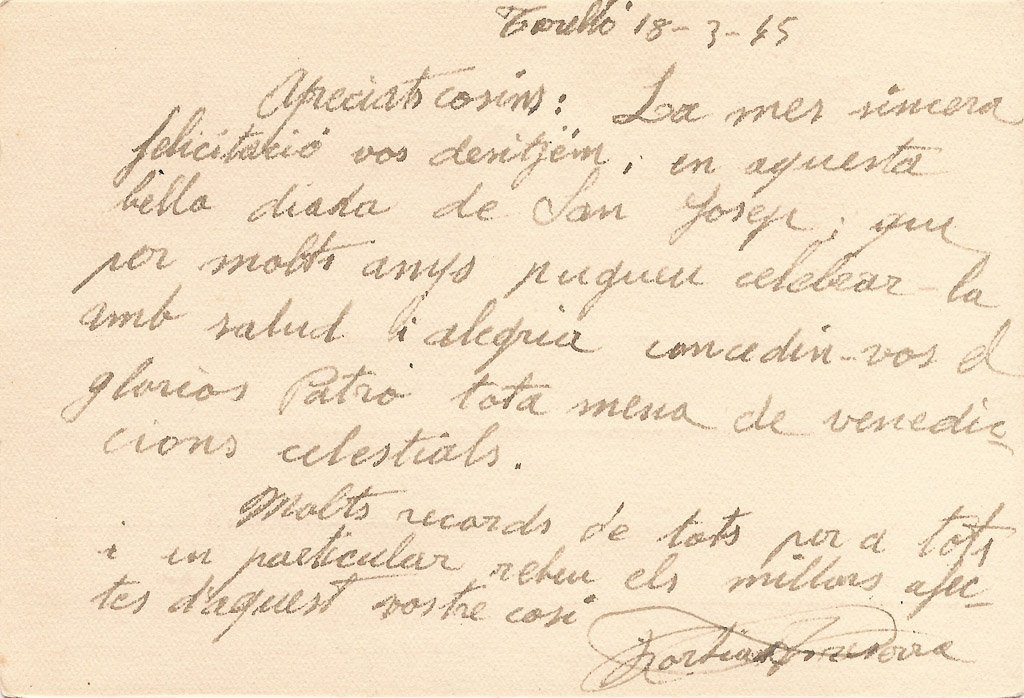 Torelló 18-3-45
Apreciats cosins: La mes sincera
felicitació vos desitjem, en aquesta
bella diada de San Josep; que
per molts anys pugueu celebrar-la
amb salud i alegria concedin-vos el
glorios Patró tota mena de venedic-
cions celestials.
Molts records de tots per a tots
i en particular rebeu els millors afec-
tes d'aquest vostre cosí